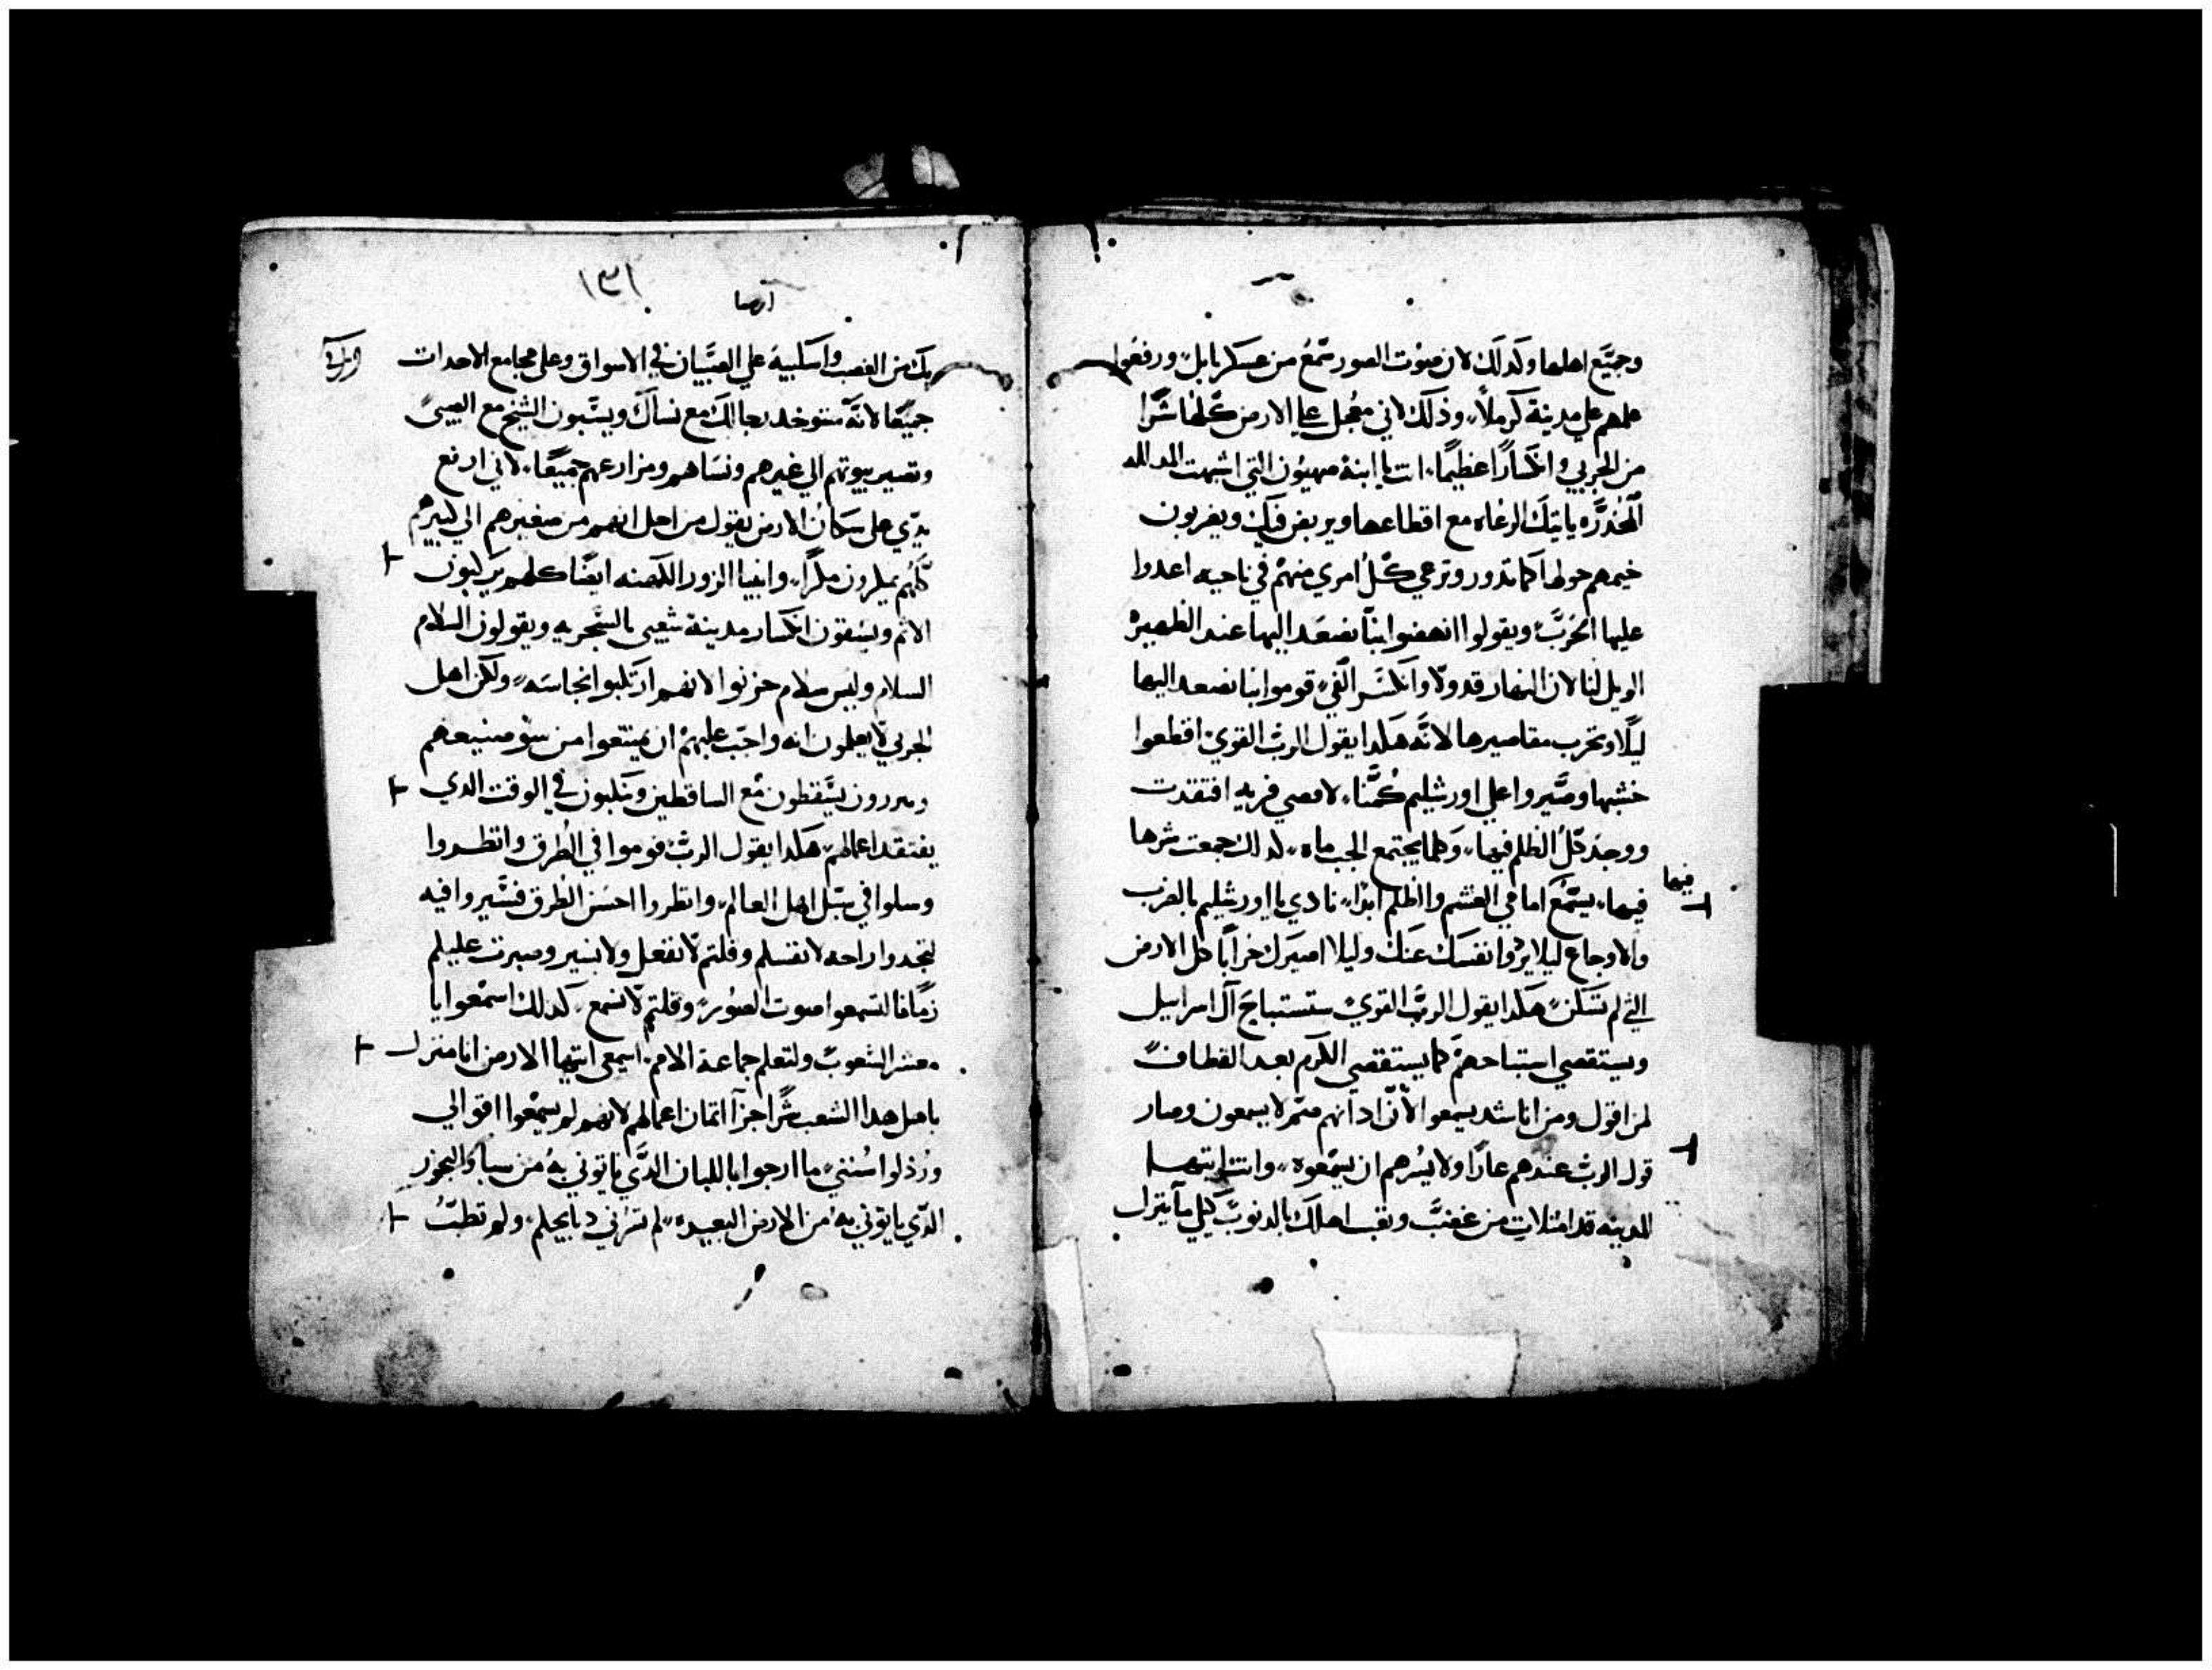 وجميع اهلها وكذلك لان صوت الصور سمع من عسكر بابل ورفعوا
علمهم علي مدينة كرملا وذلك لاني معجل علي الارض كلها شرا
من الجربي وانكسارا عظيما انت يا ابنة صهيون التي اشبهت المدلله
المخدره ياتيك الرعاه مع اقطاعها ويضربون
خيمهم حولها كما تدور وترعي كل امري منهم في ناحيه اعدوا
عليها الحرب ويقولوا انهضوا بنا نصعد اليها عند الظهيره
الويل لنا لان النهار قد ولا وانكسر الفي قوموا بنا نصعد اليها
ليلا ونخرب مقاصيرها لانه هكدا يقول الرب القوي اقطعوا
خشبها وصيروا علي اورشليم كمنا افتقدت
ووجد كل الظلم فيها وكما يجتمع الجب ماه لدلك جمعت شرها
فيها
فيها يستمع امامي الغشم والظلم ابدا نادي يا اورشليم بالضرب
والاوجاع ليلا نفسك عنك وليلا اصيرك خرابا كل الارض
التي لم تسكن هكدا يقول الرب القوي ستستباح آل اسراييل
ويستقصي استباحهم كما يستقصي الكرم بعد القطاف
لمن اقول ومن اناشد يسمعوا لان ادانهم صم لا يسمعون وصار
قول الرب عندهم عارا ولا يسرهم ان يسمعوه وانت ايتها
المدينه قد امتلات من غضب اهلك بالدنوب كيلي ما ينزل
١٣١
ارميا
بك من الغضب واسكبيه علي الصبيان في الاسواق وعلي مجامع الاحدات
جميعا لانه ستوخد رجالك مع نساك ويسبون الشيخ مع الصبي
وتصير بيوتهم الي غيرهم ونساهم ومزارعهم جميعا لاني ارفع
يدي علي سكان الارض يقول من اجل انهم من صغيرهم الي كبيرهم
كلهم يمكرون مكرا وانبيا الزور الكهنه ايضا كلهم يركبون
الاثم ويشفون انكسار مدينة شعبي بالسخريه ويقولون السلام
السلام وليس سلام خزنوا لانهم ارتكبوا النجاسه ولكن اهل
الجربي لا يعلمون انه واجب عليهم ان يمتنعوا من سو صنيعهم
يسقطون مع الساقطين وينكبون في الوقت الدي
يفتقد اعمالهم هكدا يقول الرب قوموا في الطرق وانظروا
وسلوا في سبل اهل العالم وانظروا احسن الطرق فسيروا فيه
لتجدوا راحه لانفسكم وقلتم لا نفعل ولا نسير وصيرت عليكم
لتسمعوا صوت الصور وقلتم لا نسمع كدلك اسمعوا يا
معشر الشعوب ولتعلم جماعة الامم اسمعي ايتها الارض انا منزل
باهل هدا الشعب شرا جزآ اتمان اعمالهم لانهم لم يسمعوا اقوالي
ورذلوا سنتي ما ارجوا باللبان الدي ياتوني به من سبا
الدي ياتوني به من الارض البعيده لم تسرني دبايحكم ولم تطب